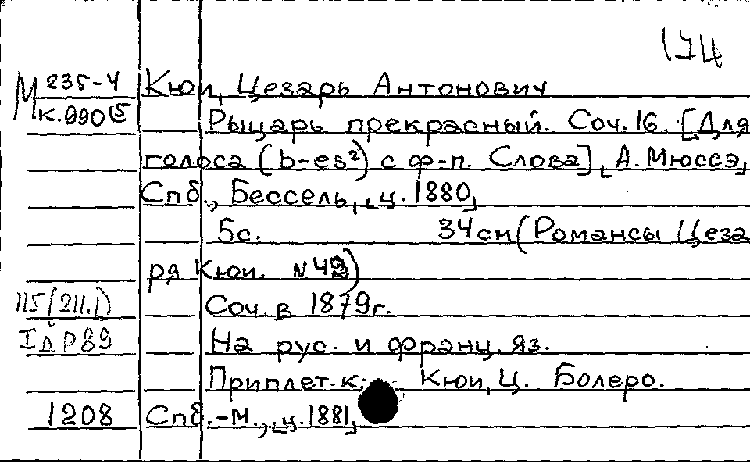 174
М 235-4 Кюи, Цезарь Антонович
К.990 Рыцарь прекрасный. Соч. 16. [Для
голоса (b-es²) с ф-п. Слова], А. Мюссэ,
Спб., Бессель, ц. 1880,
5с. 34см (Романсы Цеза
ря Кюи. N 42)
115(211.1) Соч. в 1879г.
IдР89 На рус. и франц. яз.
Приплет. к: Кюи, Ц. Болеро.
1208 Спб.-М., ц. 1881,